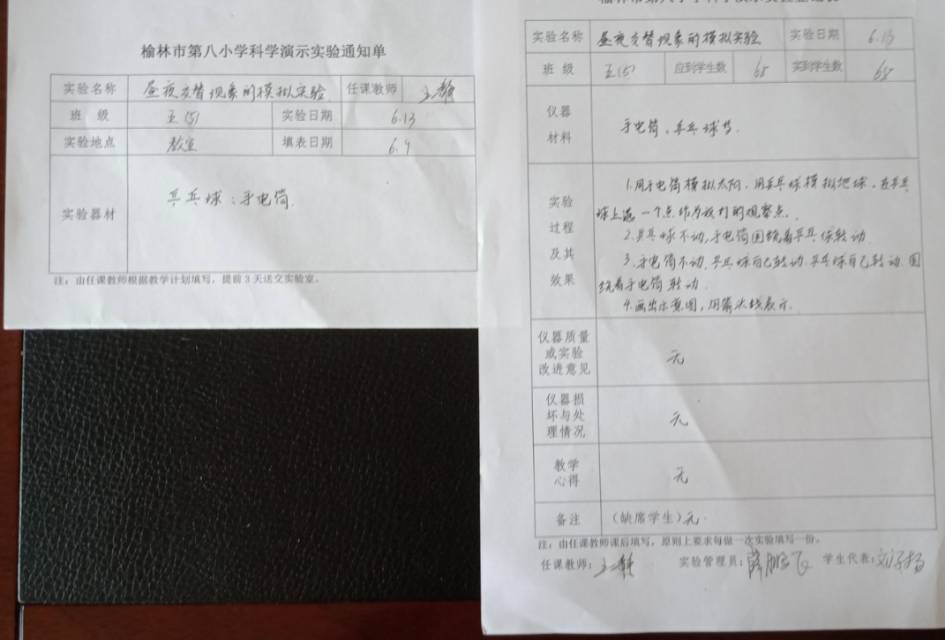 榆林市第八小学科学演示实验通知单
实验名称 昼夜交替现象的模拟实验 任课教师 王静
班 级 五(5) 实验日期 6.13
实验地点 教室 填表日期 6.9
实验器材 乒乓球;手电筒.
注:由任课教师根据教学计划填写,提前3天送交实验室。
实验名称 昼夜交替现象的模拟实验 实验日期 6.13
班 级 五(5) 应到学生数 65 实到学生数 65
仪器
材料
手电筒、乒乓球等.
实验
过程
及其
效果
1.用手电筒模拟太阳,用乒乓球模拟地球,在乒乓
球上选一个点作为我们的观察点.
2.乒乓球不动,手电筒围绕着乒乓球转动
3.手电筒不动,乒乓球自己转动.乒乓球自己转动,围
绕着手电筒转动.
4.画出示意图,用箭头线表示.
仪器质量
或实验
改进意见
无
仪器损
坏与处
理情况
无
教学
心得
无
备注 (缺席学生)无.
注:由任课教师课后填写,原则上要求每做一次实验填写一份。
任课教师:王静 实验管理员:薛鹏飞 学生代表:刘子杨